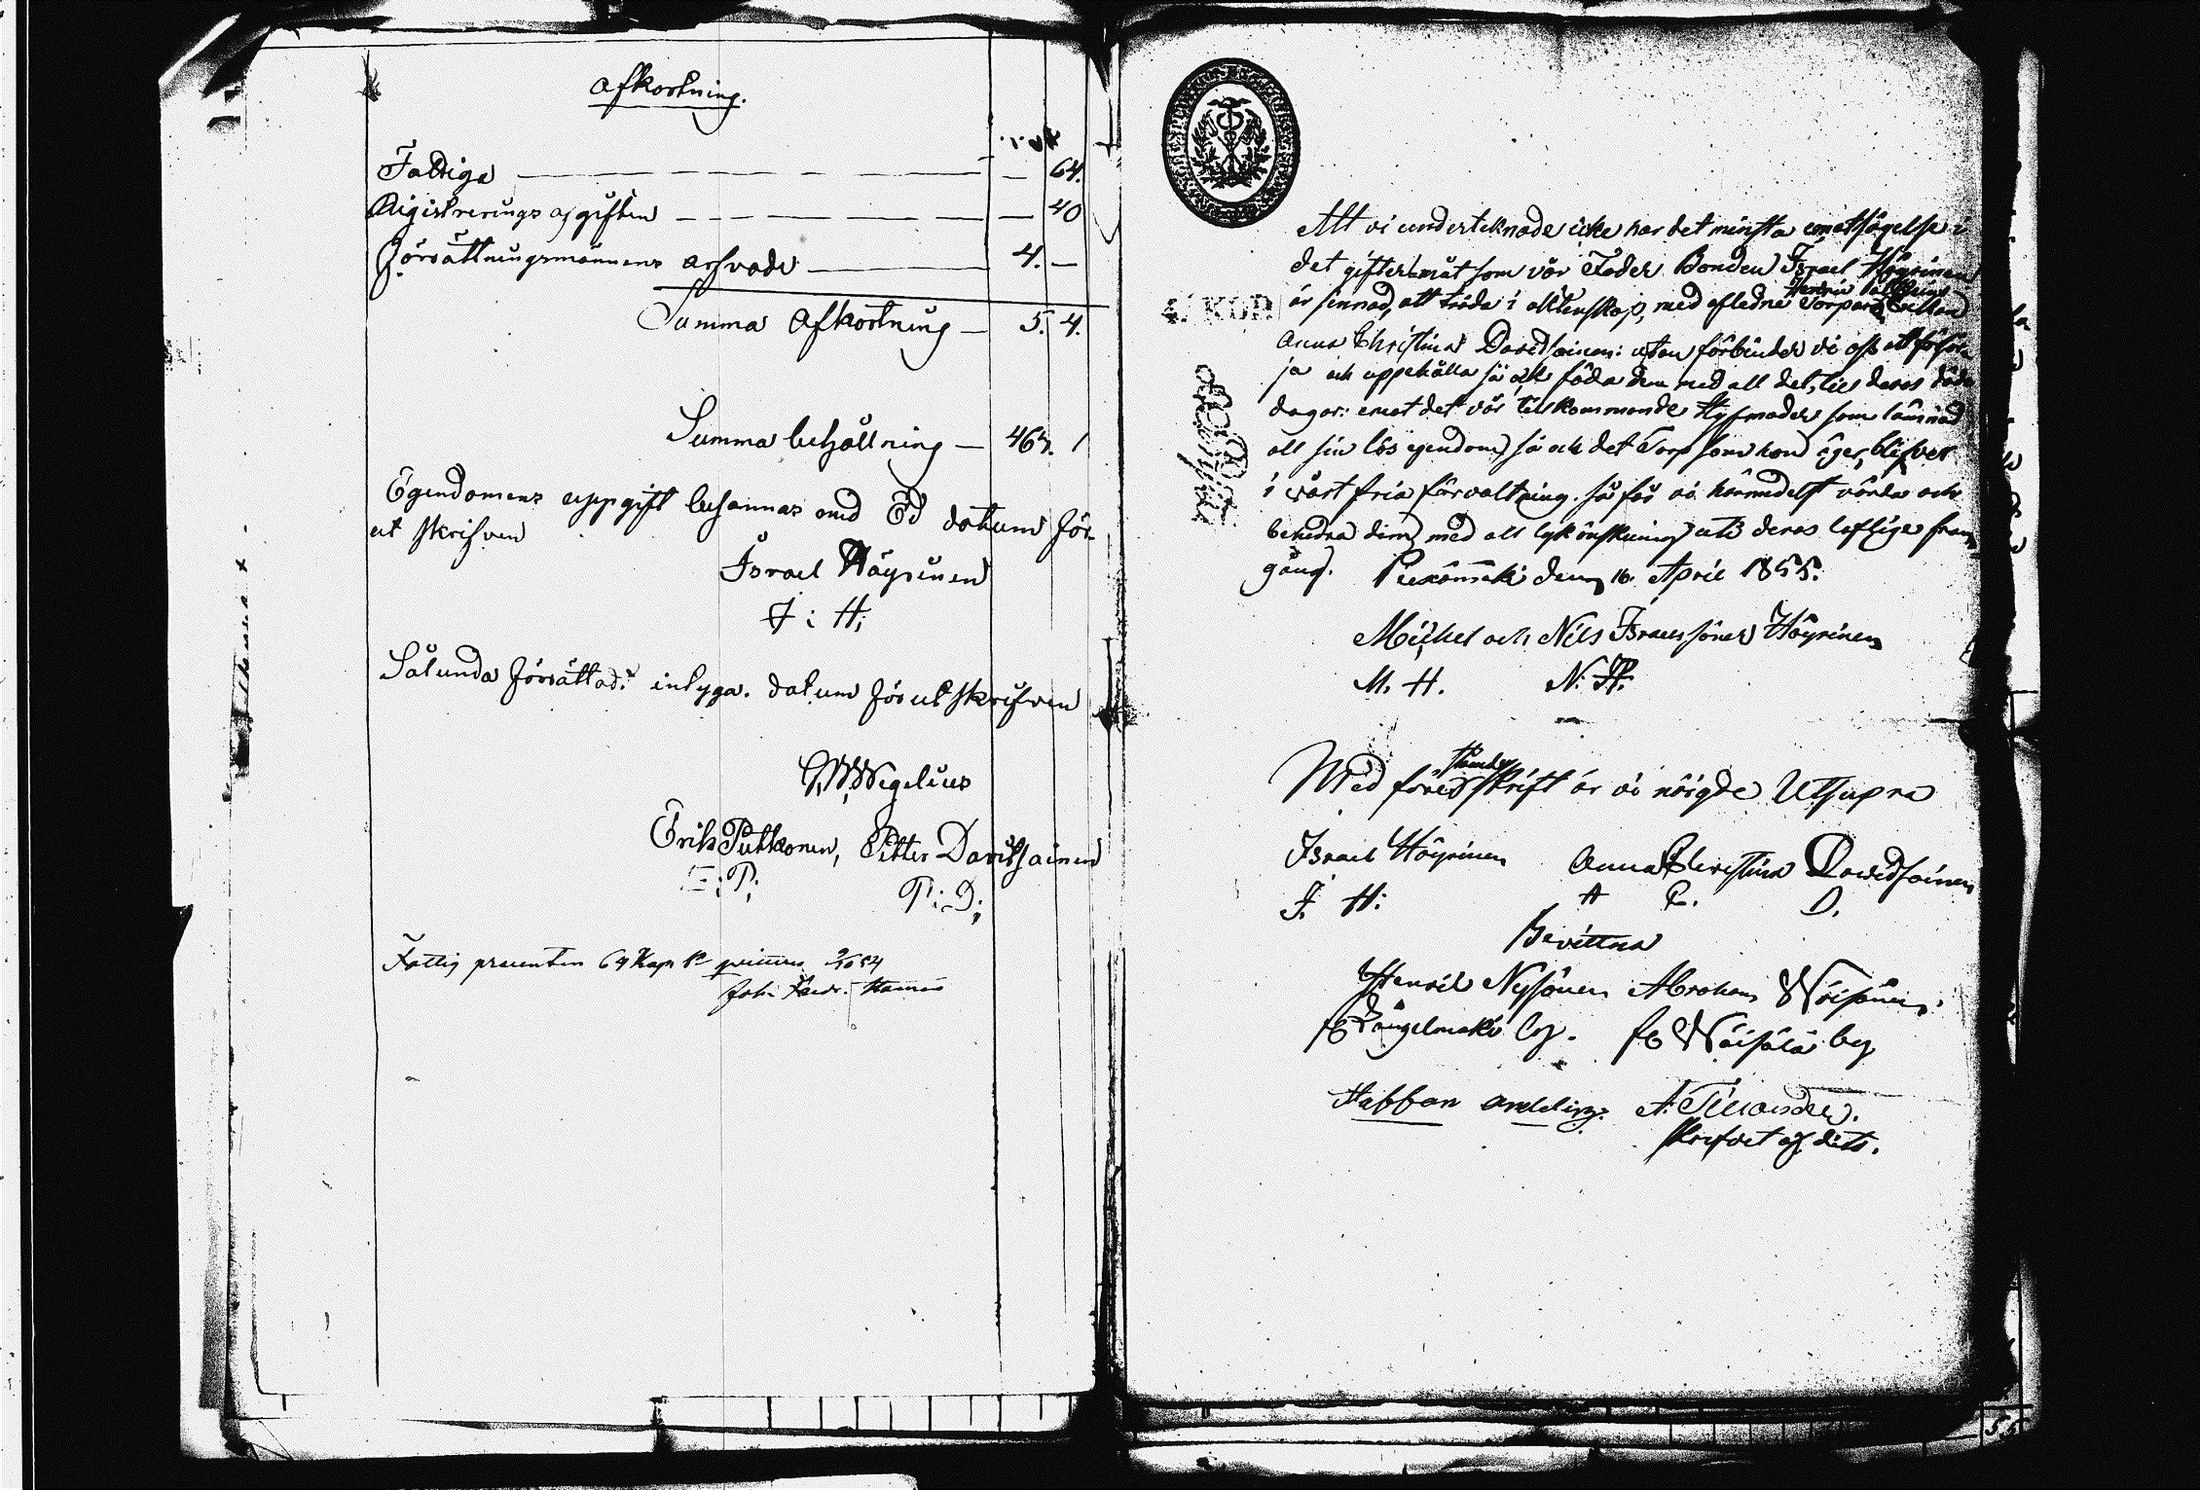 Afkortning.
Fattiga — — 64.
Registrerings afgiften — — 40
Förrättningsmännens arfvode — 4. —
Summa Afkortning — 5. 4.
Summa behållning — 467. 1
Egendomens uppgift besannas med Ed datumför
ut skrifven
Israel Häyrinen
I: H:
Sålunda förrättad: intyga. datum förut skrifven
Wegelius
Erik Putkonen, Petter Davidsainen
E: P: P: D:
Fattig procenten 64 Kop
Att vi undertecknade icke har det minsta emotsägelse i
det giftermåt som vår Fader Bonden Israel Häyrinen
är sinnad, att träda i äktenskap, med afledne Torpare Enkan
Anna Christina Davidsainen: utan förbinder vi oss att försör
ja och uppehålla så ock föda dem med all det, till deras döde
dagar: emot det vår tillkommande Styfmoder som lämnad
all sin lös egendom, så ock det Torp som hon äger, blifver
i vårt fria förvaltning. så får vi härmedelst vörda och
behedra dem med all lyckönskning uti deras loflige fram
gång. Piexämäki den 16. April 1855.
Michel och Nils Israelssöner Häyrinen
M. H. N. H.
Med förenskrift är vi nöigde Utsupra
Israel Häyrinen Anna Christina Davidsainen
I. H: A C. D.
Bevittna
Henrik Nysönen Abraham Väisänen.
fr Längelmäki by. fr Väisälä by
A. Tillander.
skrifvet af dito.